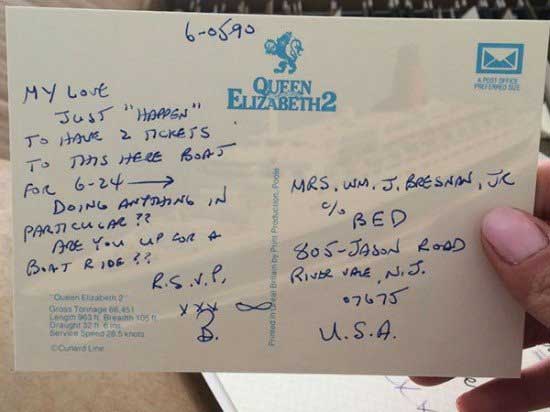 6-0590
MY LOVE
JUST "HAPPEN"
TO HAVE 2 TICKETS
TO THIS HERE BOAT
FOR 6-24 →
DOING ANYTHING IN
PARTICULAR??
ARE YOU UP FOR A
BOAT RIDE??
R.S.V.P.
XXX ∞
B.
"Queen Elizabeth 2"
Gross Tonnage 66,451
Length 963 ft. Breadth 105 ft.
Draught 32 ft. 6 ins.
Service Speed 28.5 knots
©Cunard Line
QUEEN
ELIZABETH 2
Printed in Great Britain by Print Production, Poole
A POST OFFICE
PREFERRED SIZE
MRS. WM. J. BRESNAN, JR
c/o
BED
805-JASON ROAD
RIVER VALE, N.J.
07675
U.S.A.